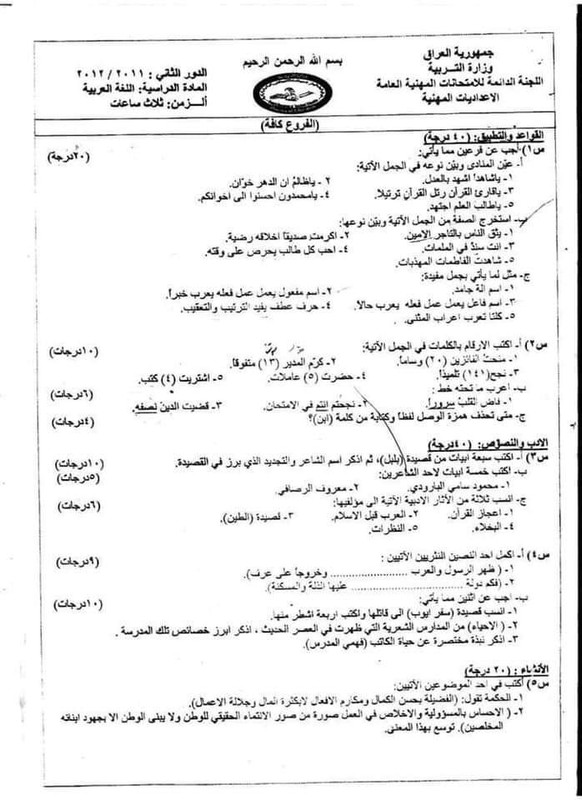 جمهورية العراق
وزارة التربية
اللجنة الدائمة للامتحانات المهنية العامة
الاعداديات المهنية
بسم الله الرحمن الرحيم
الدور الثاني : ٢٠١١ / ٢٠١٢
المادة الدراسية: اللغة العربية
الزمن: ثلاث ساعات
(الفروع كافة)
القواعد والتطبيق: (٤٠ درجة)
س١) اجب عن فرعين مما يأتي: (٢٠درجة)
أ- عيّن المنادى وبيّن نوعه في الجمل الآتية:
١- ياشاهداً اشهد بالعدل. ٢- ياظالمُ ان الدهر خوّان.
٣- ياقارئَ القرآن رتل القرآن ترتيلا. ٤- يامحمدون احسنوا الى اخوانكم.
٥- ياطالب العلم اجتهد.
ب- استخرج الصفة من الجمل الآتية وبيّن نوعها:
١- يثق الناس بالتاجر الامين. ٢- اكرمت صديقاً اخلاقه رضية.
٣- انت سندٌ في الملمات. ٤- احب كل طالب يحرص على وقته.
٥- شاهدت الفاطمات المهذبات.
ج- مثل لما يأتي بجمل مفيدة:
١- اسم الة جامد. ٢- اسم مفعول يعمل عمل فعله يعرب خبراً.
٣- اسم فاعل يعمل عمل فعله يعرب حالاً. ٤- حرف عطف يفيد الترتيب والتعقيب.
٥- كلتا تعرب اعراب المثنى.
س٢) أ- اكتب الارقام بالكلمات في الجمل الآتية: (١٠درجات)
١- منحتُ الفائزين (٢٠) وساماً. ٢- كرّم المدير (١٣) متفوقاً.
٣- نجح(١٤١) تلميذاً. ٤- حضرت (٥) عاملات. ٥- اشتريت (٤) كتب.
ب- اعرب ما تحته خط : (٦درجات)
١- فاض القلبُ سروراً. ٢- نجحتم انتم في الامتحان. ٣- قضيت الدينَ نصفه.
ج- متى تحذف همزة الوصل لفظاً وكتابة من كلمة (ابن)؟ (٤درجات)
الادب والنصوص: (٤٠درجة)
س٣) أ- اكتب سبعة ابيات من قصيدة (بلبل)، ثم اذكر اسم الشاعر والتجديد الذي برز في القصيدة. (١٠درجات)
ب- اكتب خمسة ابيات لاحد الشاعرين: (٥درجات)
١- محمود سامي البارودي. ٢- معروف الرصافي.
ج- انسب ثلاثة من الآثار الادبية الآتية الى مؤلفيها: (٦درجات)
١- اعجاز القرآن. ٢- العرب قبل الاسلام. ٣- قصيدة (الطين).
٤- البخلاء. ٥- النظرات.
س٤) أ- اكمل احد النصين النثريين الآتيين : (٩درجات)
١- ( ظهر الرسول والعرب .................. وخروجاً على عرف).
٢- (فكم دولة .................. عليها الذلة والمسكنة).
ب- اجب عن اثنين مما يأتي: (١٠درجات)
١- انسب قصيدة (سفر ايوب) الى قائلها واكتب اربعة اشطر منها.
٢- ( الاحياء) من المدارس الشعرية التي ظهرت في العصر الحديث ، اذكر ابرز خصائص تلك المدرسة .
٣- اذكر نبذة مختصرة عن حياة الكاتب (فهمي المدرس).
الأنشاء : (٢٠ درجة)
س٥) أكتب في احد الموضوعين الآتيين:
١- للحكمة تقول: (الفضيلة يحسن الكمال ومكارم الافعال لابكثرة المال وجلالة الاعمال).
٢- ( الاحساس بالمسؤولية والاخلاص في العمل صورة من صور الانتماء الحقيقي للوطن ولا يبنى الوطن الا بجهود ابنائه
المخلصين). توسع بهذا المعنى.